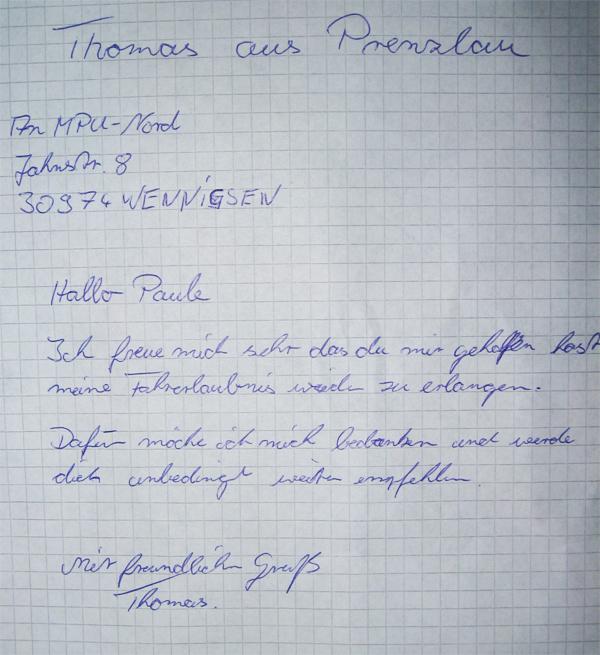 Thomas aus Prenzlau
An MPU-Nord
Jahnstr. 8
30974 WENNIGSEN
Hallo Paule
Ich freue mich sehr das du mir geholfen hast
meine Fahrerlaubnis wieder zu erlangen.
Dafür möchte ich mich bedanken und werde
dich unbedingt weiter empfehlen.
Mit freundlichen Gruß
Thomas.